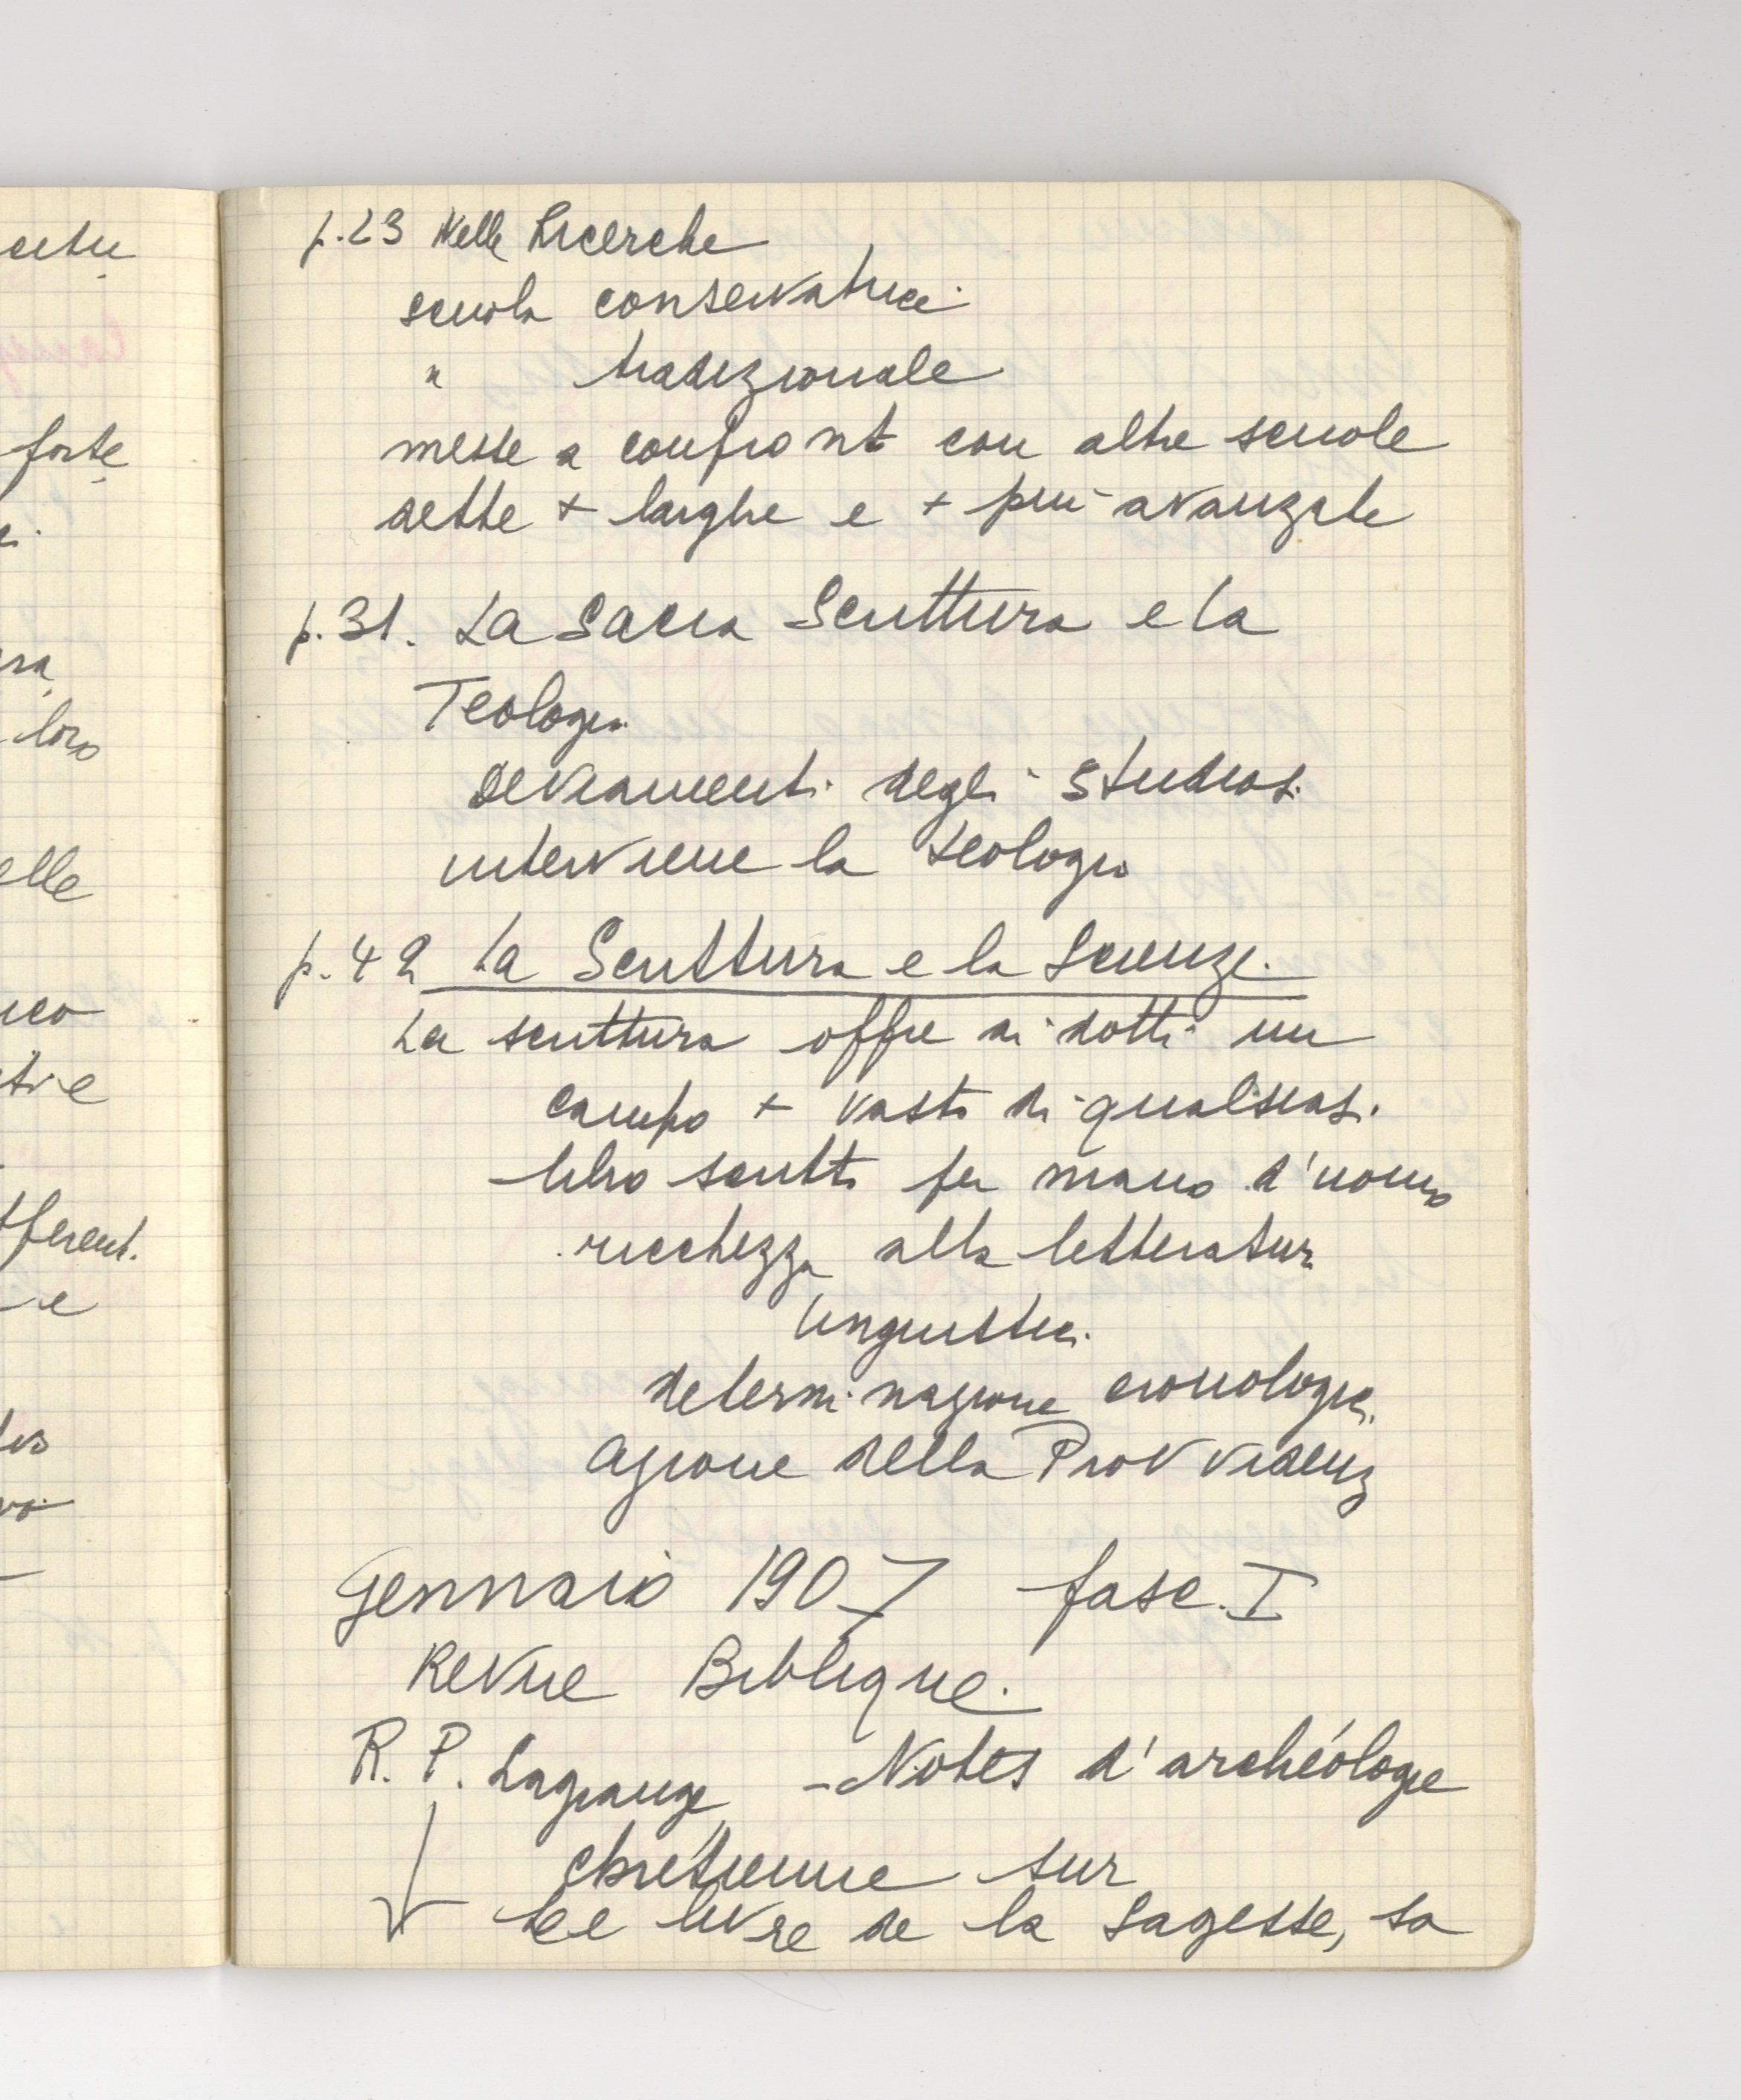 p.23 Nelle Ricerche
scuola conservatrice
" tradizionale
messe a confronto con altre scuole
dette + larghe e + più avanzate
p.31. La Sacra Scrittura e la
Teologia
Deviamenti degli studiosi
interviene la teologia
p.42 La Scrittura e la Scienza.
La scrittura offre ai dotti un
campo + vasto di qualsiasi
libro scritto per mano d'uomo
ricchezza alla letteratura
linguistica
determinazione cronologica
azione della Provvidenz
Gennaio 1907 fasc. I
Revue Biblique.
R. P. Lagrange - Notes d'archéologie
chrétienne sur
Le livre de la Sagesse, sa
cetu
forte
loro
elle